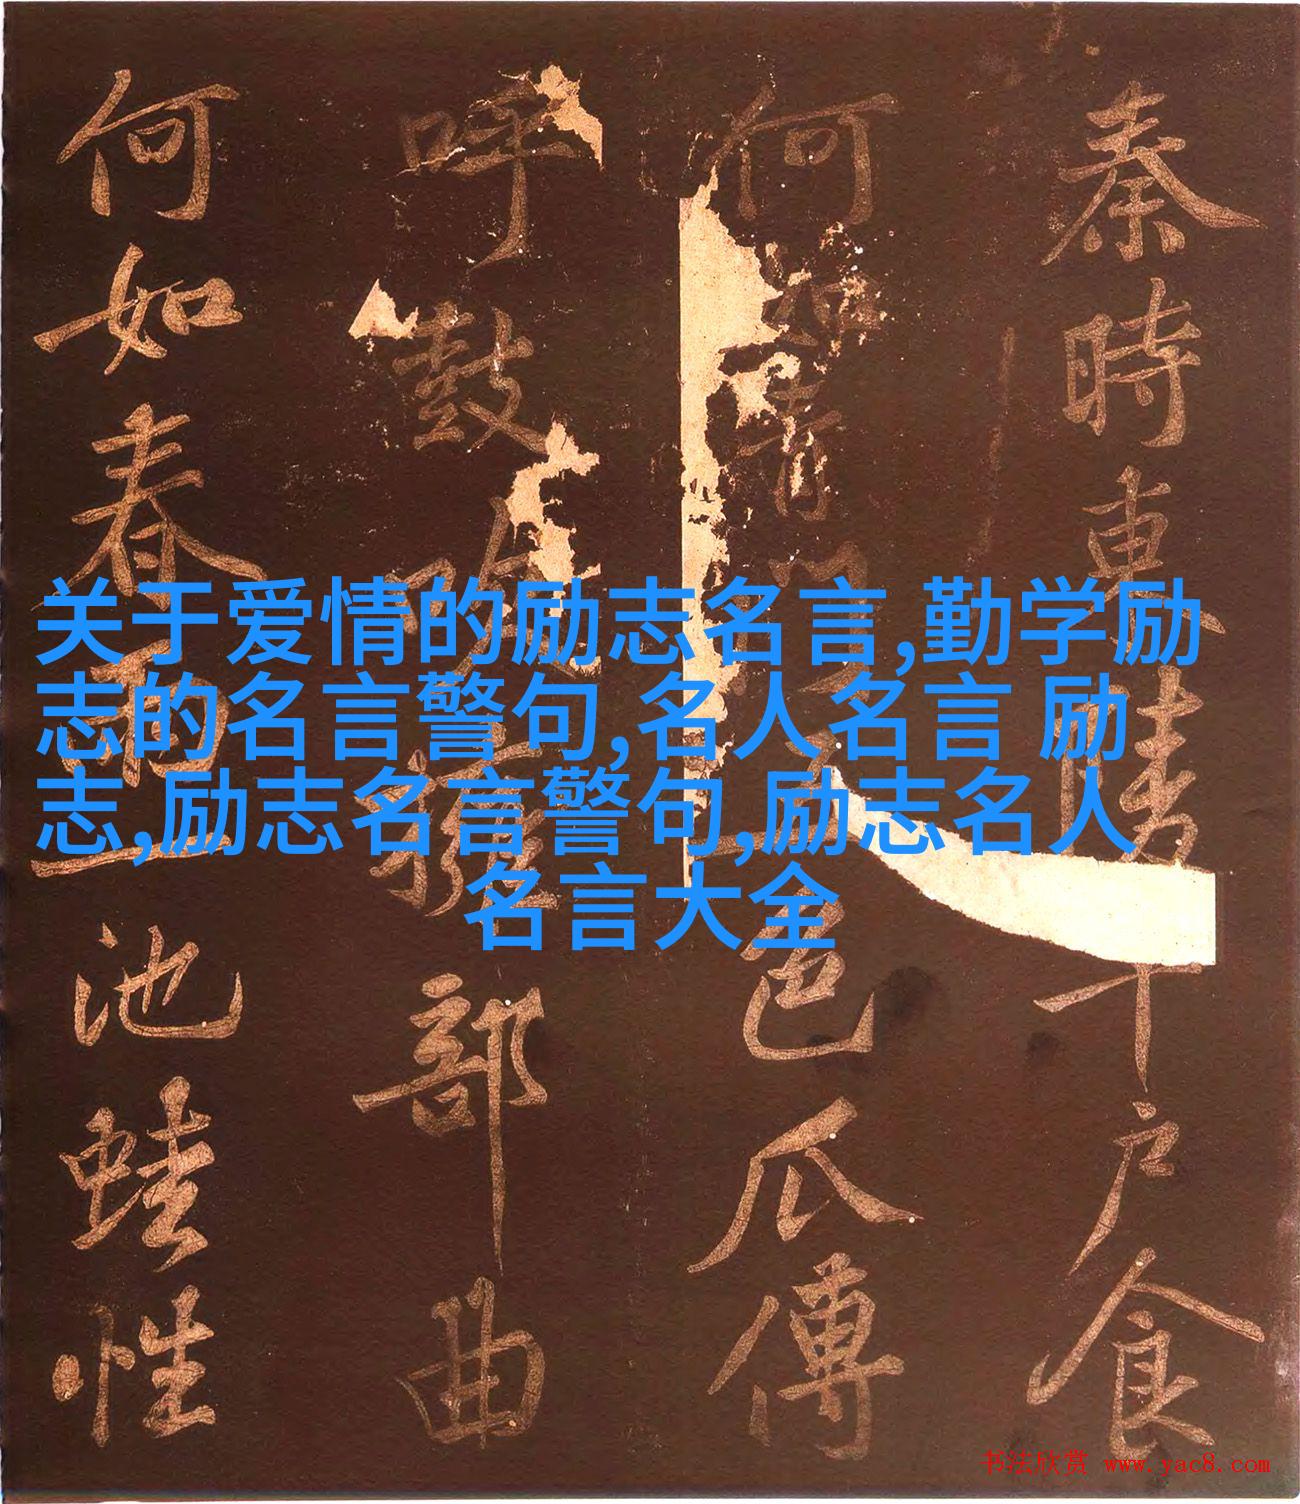 关于爱情的励志名言,勤学励
志的名言警句,名人名言 励
志,励志名言警句,励志名人
名言大全
秦時東陵千户食
何如青門五色瓜傳
呼鼓吹擁部曲
何如春雨一池蛙性
书法欣赏 www.yac8.com